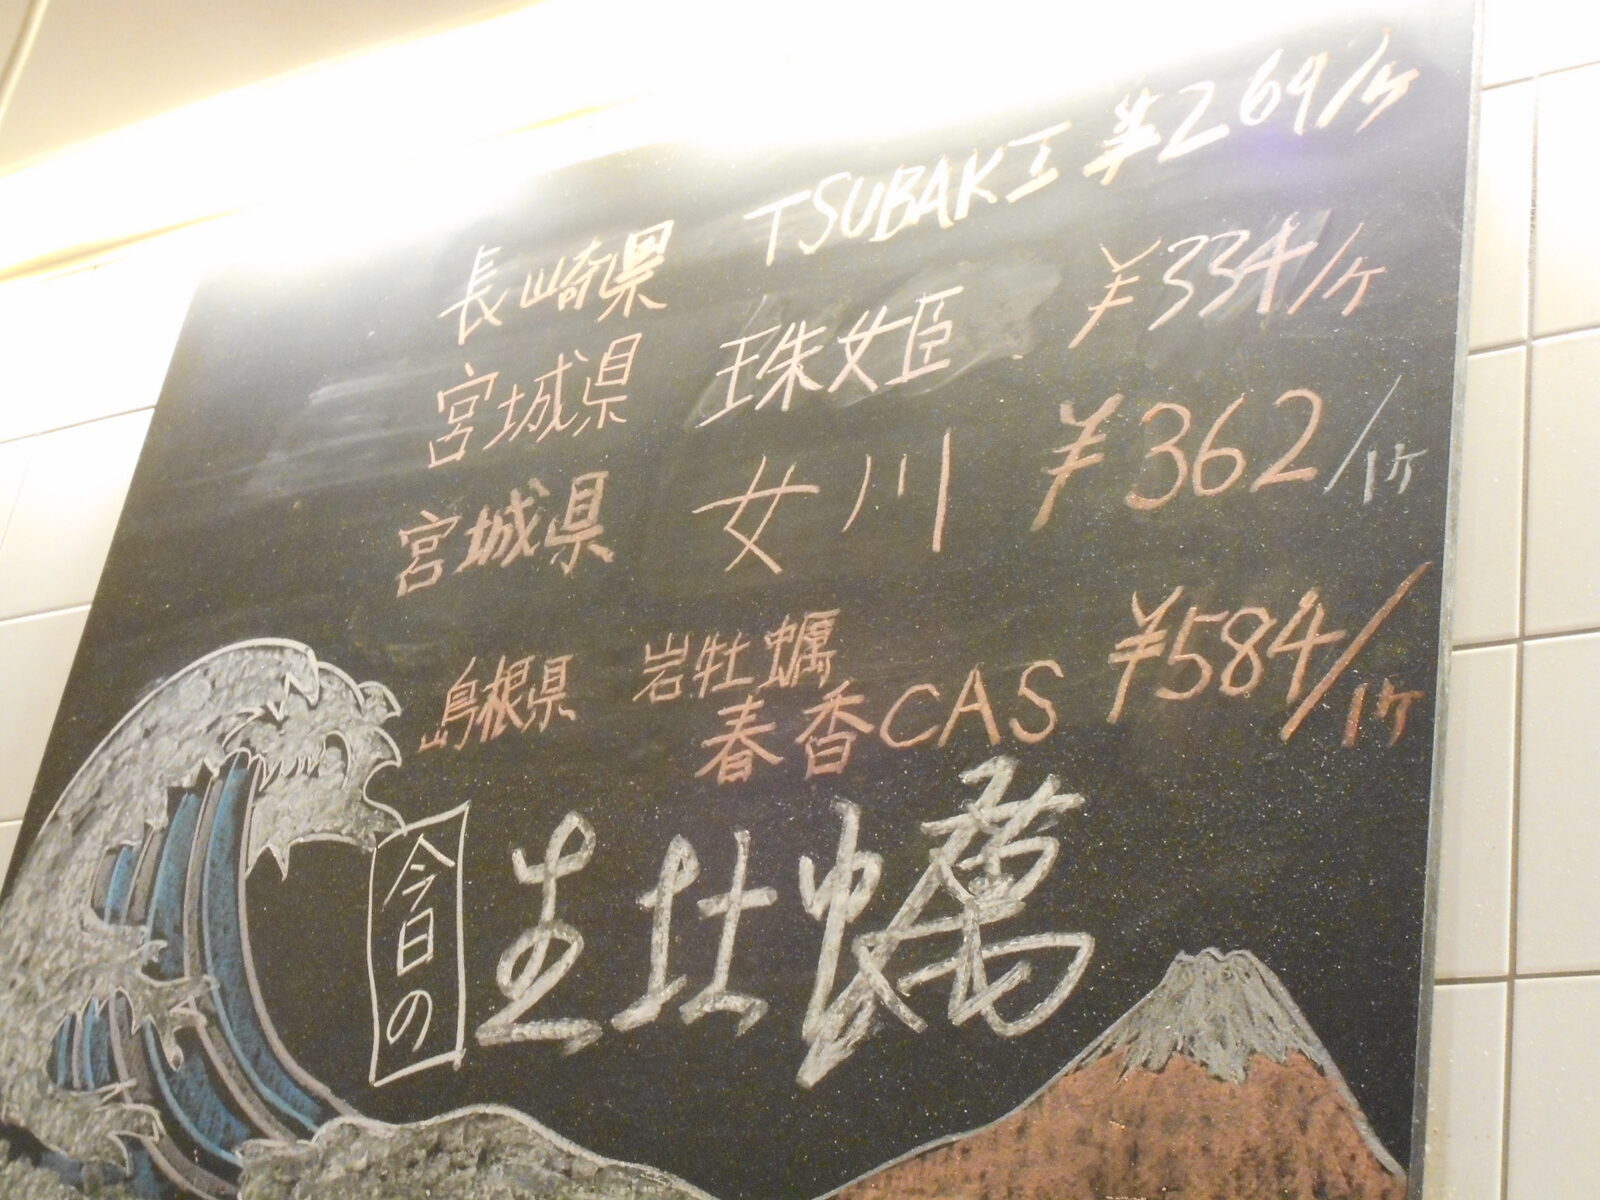 長崎県 TSUBAKI ¥269/ヶ
宮城県 珠女姫 ¥334/ヶ
宮城県 女川 ¥362/1ヶ
島根県 岩牡蠣 春香CAS ¥584/1ヶ
今日の
生牡蠣